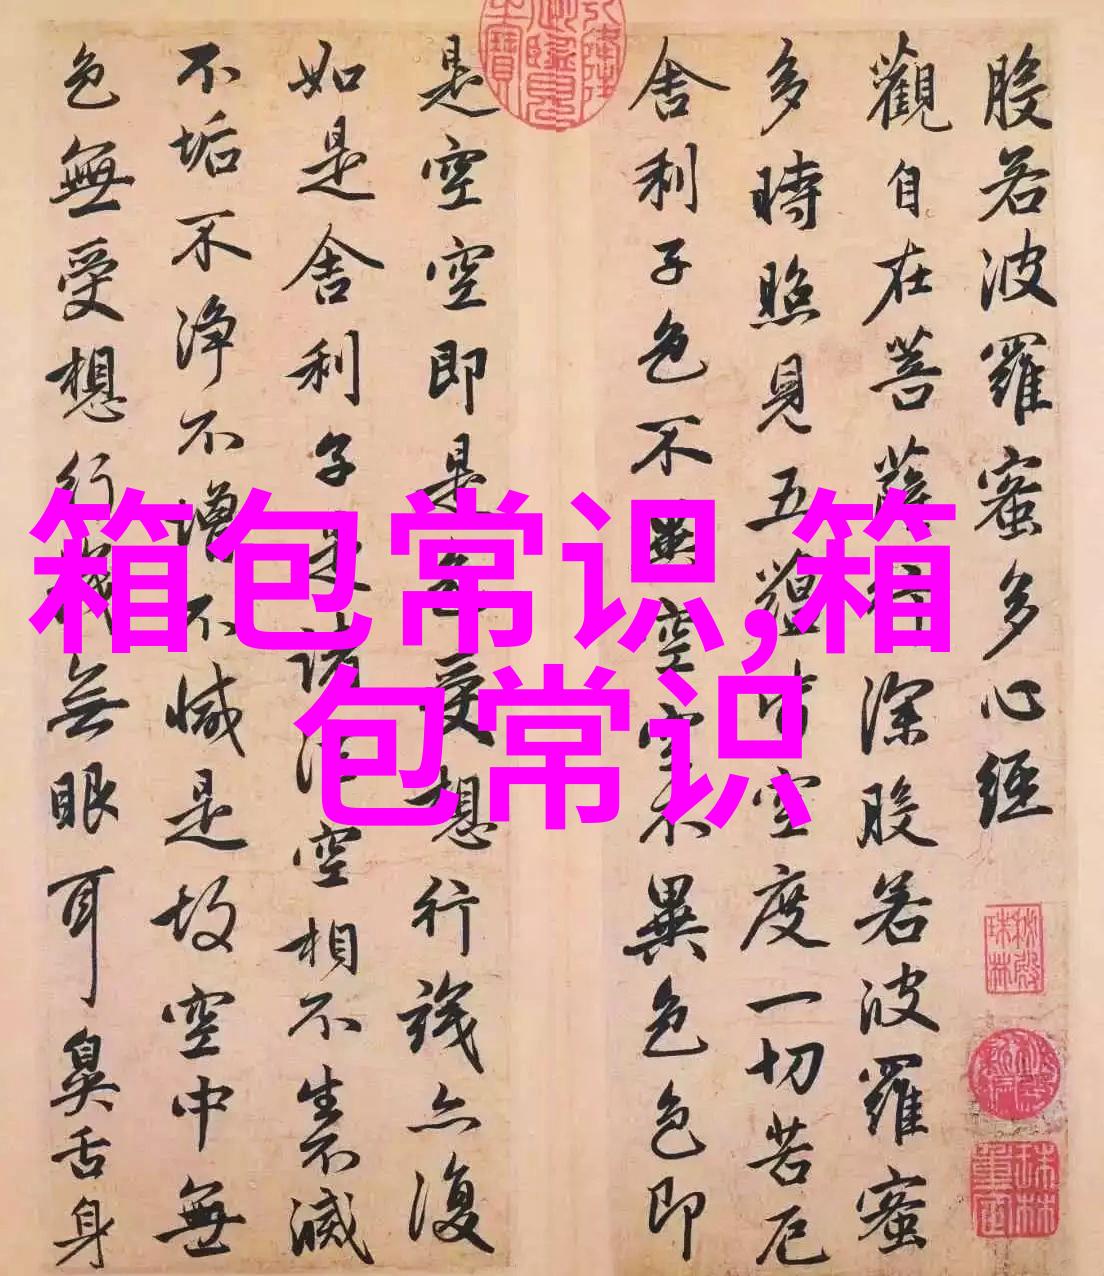 般若波羅蜜多心經
觀自在菩薩行深般若波羅蜜
多時照見五蘊皆空度一切苦厄
舍利子色不異空空不異色色即
是空空即是色受想行識亦復
如是舍利子是諸法空相不生不滅
不垢不淨不增不減是故空中無
色無受想行識無眼耳鼻舌身
箱包常识,箱
包常识